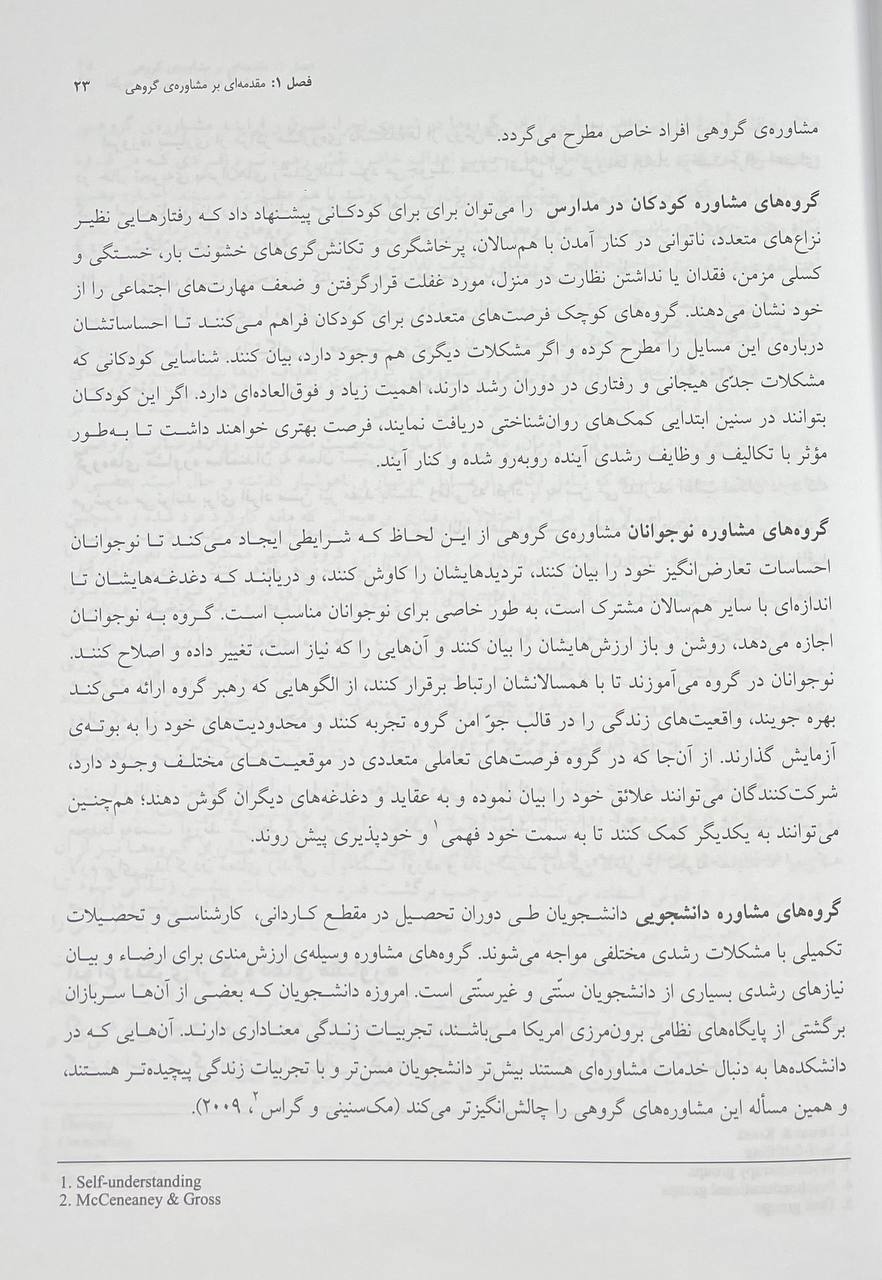 فصل ۱: مقدمه‌ای بر مشاوره‌ی گروهی ۲۳
مشاوره‌ی گروهی افراد خاص مطرح می‌گردد.
گروه‌های مشاوره کودکان در مدارس را می‌توان برای برای کودکانی پیشنهاد داد که رفتارهایی نظیر
نزاع‌های متعدد، ناتوانی در کنار آمدن با هم‌سالان، پرخاشگری و تکانش‌گری‌های خشونت بار، خستگی و
کسلی مزمن، فقدان یا نداشتن نظارت در منزل، مورد غفلت قرارگرفتن و ضعف مهارت‌های اجتماعی را از
خود نشان می‌دهند. گروه‌های کوچک فرصت‌های متعددی برای کودکان فراهم می‌کنند تا احساساتشان
درباره‌ی این مسایل را مطرح کرده و اگر مشکلات دیگری هم وجود دارد، بیان کنند. شناسایی کودکانی که
مشکلات جدّی هیجانی و رفتاری در دوران رشد دارند، اهمیت زیاد و فوق‌العاده‌ای دارد. اگر این کودکان
بتوانند در سنین ابتدایی کمک‌های روان‌شناختی دریافت نمایند، فرصت بهتری خواهند داشت تا به‌طور
مؤثر با تکالیف و وظایف رشدی آینده روبه‌رو شده و کنار آیند.
گروه‌های مشاوره نوجوانان مشاوره‌ی گروهی از این لحاظ که شرایطی ایجاد می‌کند تا نوجوانان
احساسات تعارض‌انگیز خود را بیان کنند، تردیدهایشان را کاوش کنند، و دریابند که دغدغه‌هایشان تا
اندازه‌ای با سایر هم‌سالان مشترک است، به طور خاصی برای نوجوانان مناسب است. گروه به نوجوانان
اجازه می‌دهد، روشن و باز ارزش‌هایشان را بیان کنند و آن‌هایی را که نیاز است، تغییر داده و اصلاح کنند.
نوجوانان در گروه می‌آموزند تا با همسالانشان ارتباط برقرار کنند، از الگوهایی که رهبر گروه ارائه می‌کند
بهره جویند، واقعیت‌های زندگی را در قالب جوّ امن گروه تجربه کنند و محدودیت‌های خود را به بوته‌ی
آزمایش گذارند. از آن‌جا که در گروه فرصت‌های تعاملی متعددی در موقعیت‌های مختلف وجود دارد،
شرکت‌کنندگان می‌توانند علائق خود را بیان نموده و به عقاید و دغدغه‌های دیگران گوش دهند؛ هم‌چنین
می‌توانند به یکدیگر کمک کنند تا به سمت خود فهمی۱ و خودپذیری پیش روند.
گروه‌های مشاوره دانشجویی دانشجویان طی دوران تحصیل در مقطع کاردانی، کارشناسی و تحصیلات
تکمیلی با مشکلات رشدی مختلفی مواجه می‌شوند. گروه‌های مشاوره وسیله‌ی ارزش‌مندی برای ارضاء و بیان
نیازهای رشدی بسیاری از دانشجویان سنّتی و غیرسنّتی است. امروزه دانشجویان که بعضی از آن‌ها سربازان
برگشتی از پایگاه‌های نظامی برون‌مرزی امریکا می‌باشند، تجربیات زندگی معناداری دارند. آن‌هایی که در
دانشکده‌ها به دنبال خدمات مشاوره‌ای هستند بیش‌تر دانشجویان مسن‌تر و با تجربیات زندگی پیچیده‌تر هستند،
و همین مسأله این مشاوره‌های گروهی را چالش‌انگیزتر می‌کند (مک‌سنینی و گراس۲، ۲۰۰۹).
1. Self-understanding
2. McCeneaney & Gross